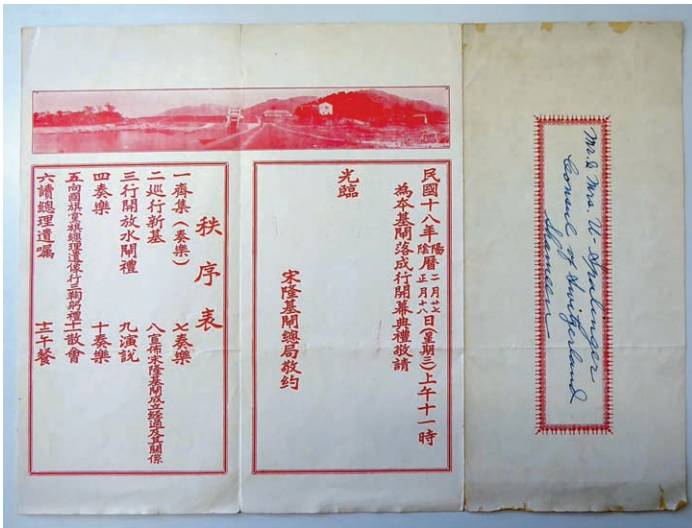 Mr. & Mrs. U. Spalinger
Consul of Switzerland
Shameen
民國十八年陽曆二月廿七陰曆正月十八日(星期三)上午十一時
為本基閘落成行開幕典禮敬請
光臨
宋隆基閘總局敬約
秩序表
一齊集(奏樂)
二巡行新基
三行開放水閘禮
四奏樂
五向國旗黨旗總理遺像行三鞠躬禮
六讀總理遺囑
七奏樂
八宣佈宋隆基閘成立經過及其關係
九演說
十奏樂
十一散會
十二午餐